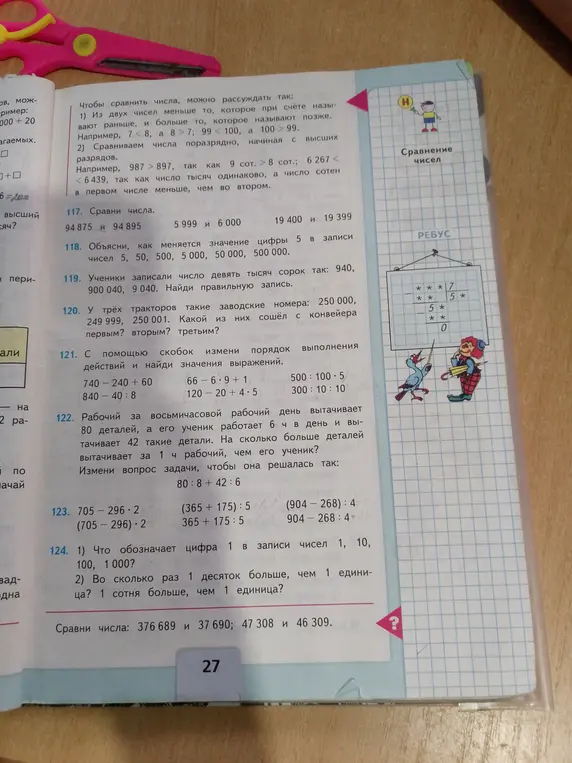 ов, мож-
ример:
000 + 20
агаемых.
+ □
высший
сяч?
пери-
али
— на
2 ра-
по
ачай
вад-
одна
Чтобы сравнить числа, можно рассуждать так:
1) Из двух чисел меньше то, которое при счёте назы-
вают раньше, и больше то, которое называют позже.
Например, 7 < 8, а 8 > 7; 99 < 100, а 100 > 99.
2) Сравниваем числа поразрядно, начиная с высших
разрядов.
Например, 987 > 897, так как 9 сот. > 8 сот.; 6 267 <
< 6 439, так как число тысяч одинаково, а число сотен
в первом числе меньше, чем во втором.
117. Сравни числа.
94 875 и 94 895 5 999 и 6 000 19 400 и 19 399
118. Объясни, как меняется значение цифры 5 в записи
чисел 5, 50, 500, 5 000, 50 000, 500 000.
119. Ученики записали число девять тысяч сорок так: 940,
900 040, 9 040. Найди правильную запись.
120. У трёх тракторов такие заводские номера: 250 000,
249 999, 250 001. Какой из них сошёл с конвейера
первым? вторым? третьим?
121. С помощью скобок измени порядок выполнения
действий и найди значения выражений.
740 − 240 + 60 66 − 6 · 9 + 1 500 : 100 · 5
840 − 40 : 8 120 − 20 + 4 · 5 300 : 10 : 10
122. Рабочий за восьмичасовой рабочий день вытачивает
80 деталей, а его ученик работает 6 ч в день и вы-
тачивает 42 такие детали. На сколько больше деталей
вытачивает за 1 ч рабочий, чем его ученик?
Измени вопрос задачи, чтобы она решалась так:
80 : 8 + 42 : 6
123. 705 − 296 · 2 (365 + 175) : 5 (904 − 268) : 4
(705 − 296) · 2 365 + 175 : 5 904 − 268 : 4
124. 1) Что обозначает цифра 1 в записи чисел 1, 10,
100, 1 000?
2) Во сколько раз 1 десяток больше, чем 1 едини-
ца? 1 сотня больше, чем 1 единица?
Сравни числа: 376 689 и 37 690; 47 308 и 46 309.
?
27
Н
Сравнение
чисел
РЕБУС
* * * 7
* * 5 *
5 *
* *
0